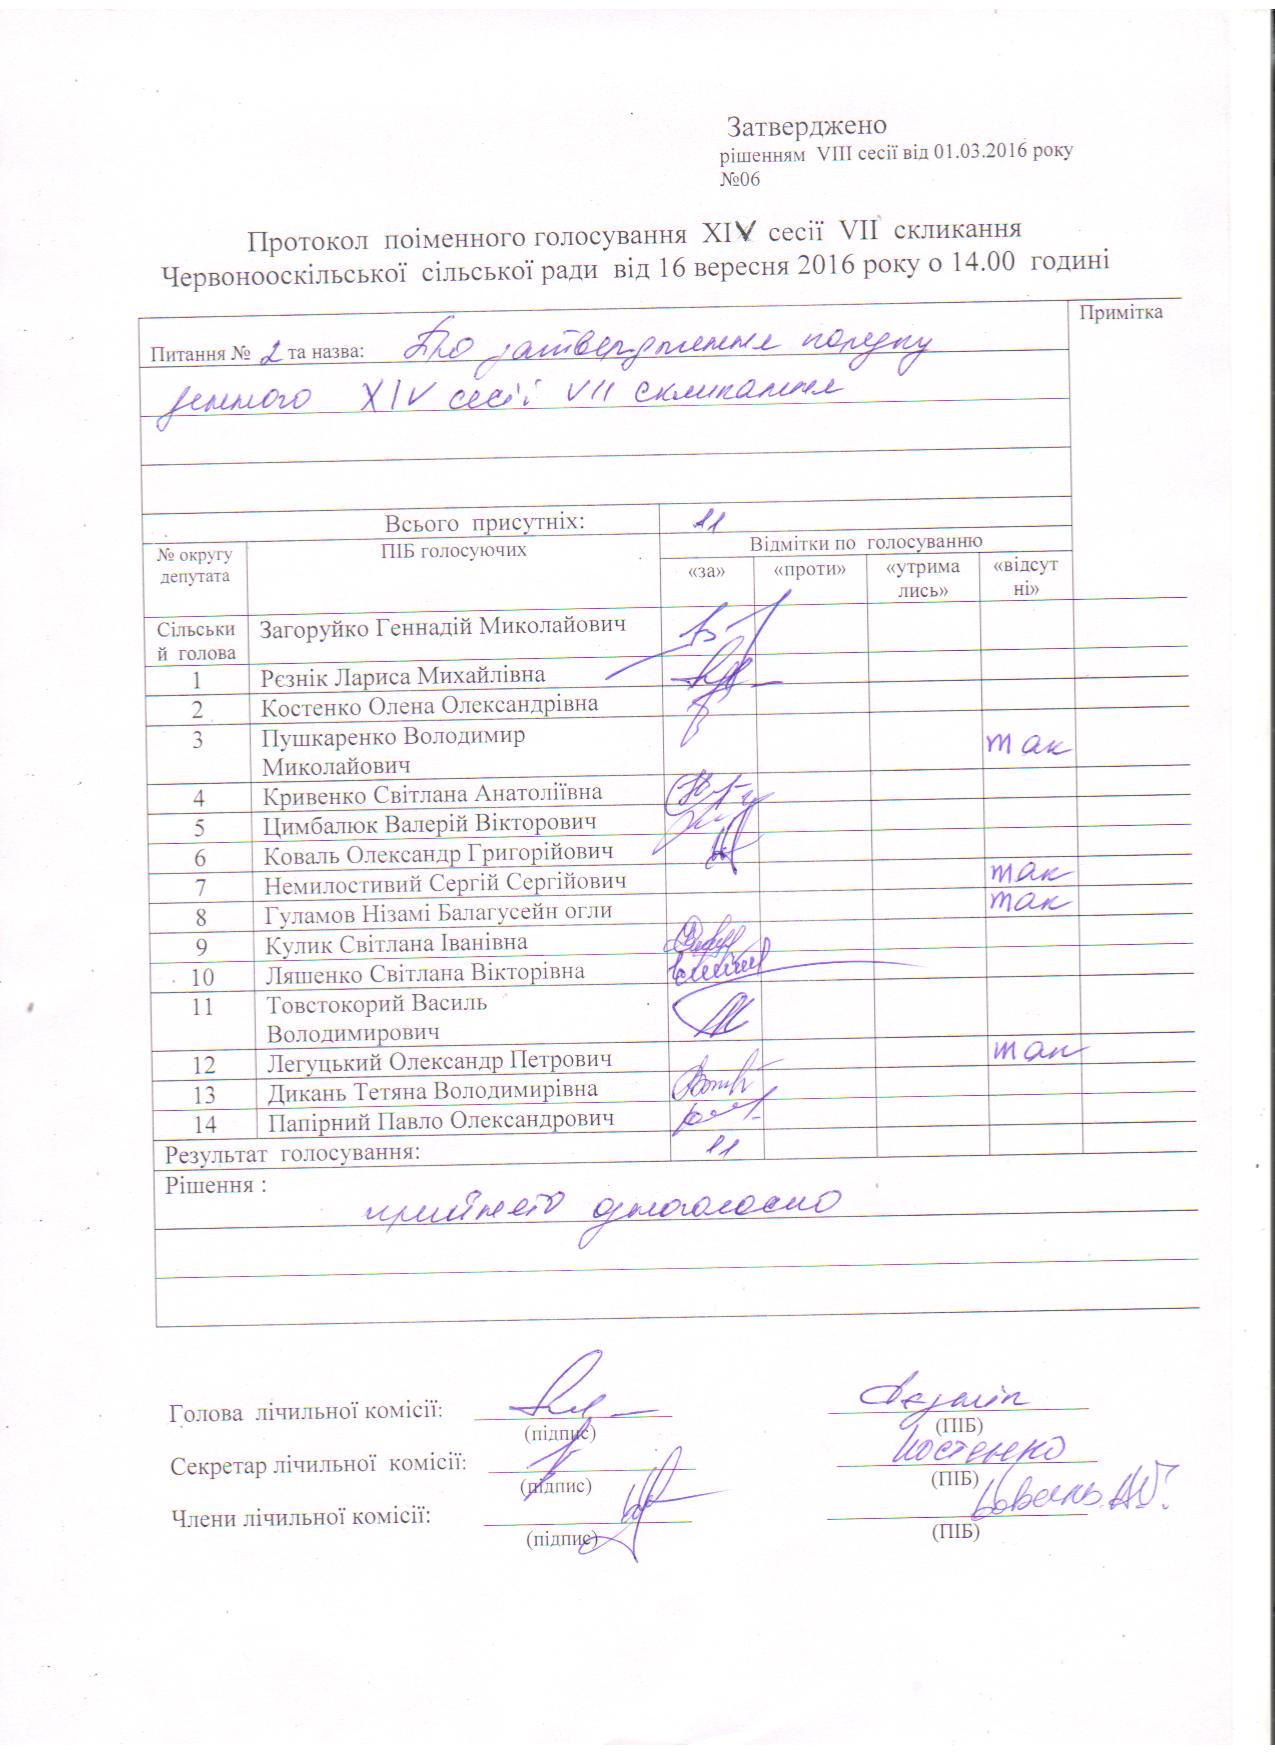 Затверджено
рішенням VIII сесії від 01.03.2016 року
№06
Протокол поіменного голосування XIV сесії VII скликання
Червонооскільської сільської ради від 16 вересня 2016 року о 14.00 годині
Примітка
Питання № 2 та назва: Про затвердження порядку
денного XIV сесії VII скликання
Всього присутніх: 11
№ округу депутата ПІБ голосуючих Відмітки по голосуванню
«за» «проти» «утрима лись» «відсут ні»
Сільськи й голова Загоруйко Геннадій Миколайович
1 Рєзнік Лариса Михайлівна
2 Костенко Олена Олександрівна
3 Пушкаренко Володимир Миколайович так
4 Кривенко Світлана Анатоліївна
5 Цимбалюк Валерій Вікторович
6 Коваль Олександр Григорійович
7 Немилостивий Сергій Сергійович так
8 Гуламов Нізамі Балагусейн огли так
9 Кулик Світлана Іванівна
10 Ляшенко Світлана Вікторівна
11 Товстокорий Василь Володимирович
12 Легуцький Олександр Петрович так
13 Дикань Тетяна Володимирівна
14 Папірний Павло Олександрович
Результат голосування: 11
Рішення :
прийнято одноголосно
Голова лічильної комісії: Рєзнік
(підпис) (ПІБ)
Секретар лічильної комісії: Костенко
(підпис) (ПІБ)
Члени лічильної комісії: Коваль
(підпис) (ПІБ)